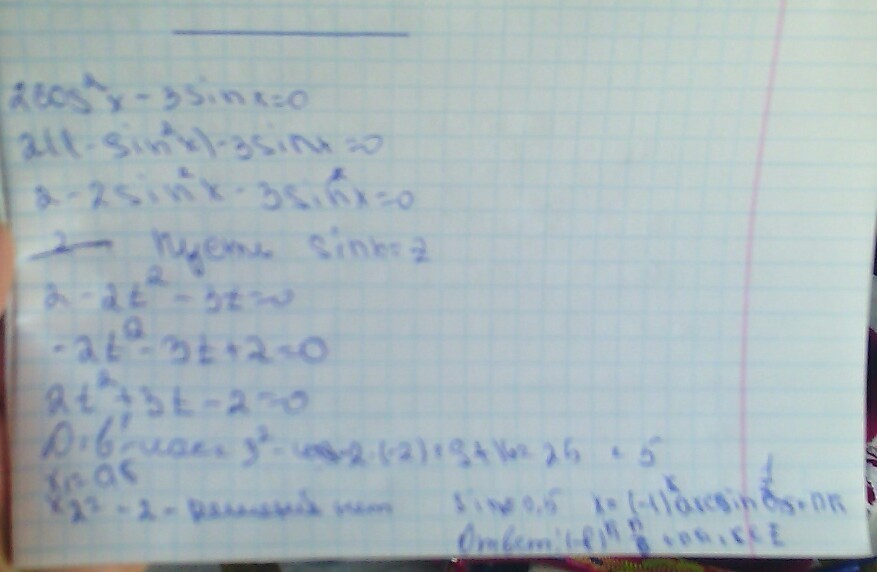 2cos²x - 3sinx=0
2(1-sin²x)-3sinx=0
2-2sin²x-3sin²x=0
Пусть sinx=z
2-2t²-3t=0
-2t²-3t+2=0
2t²+3t-2=0
D=b²-4ac= 3²-4·2·(-2)=9+16=25 = 5
x₁=0,5
x₂=-2 - решений нет sinx=0,5 x=(-1)ᵏ arcsin
Ответ: (-1)ᵏ π/6 +πk, k∈Z